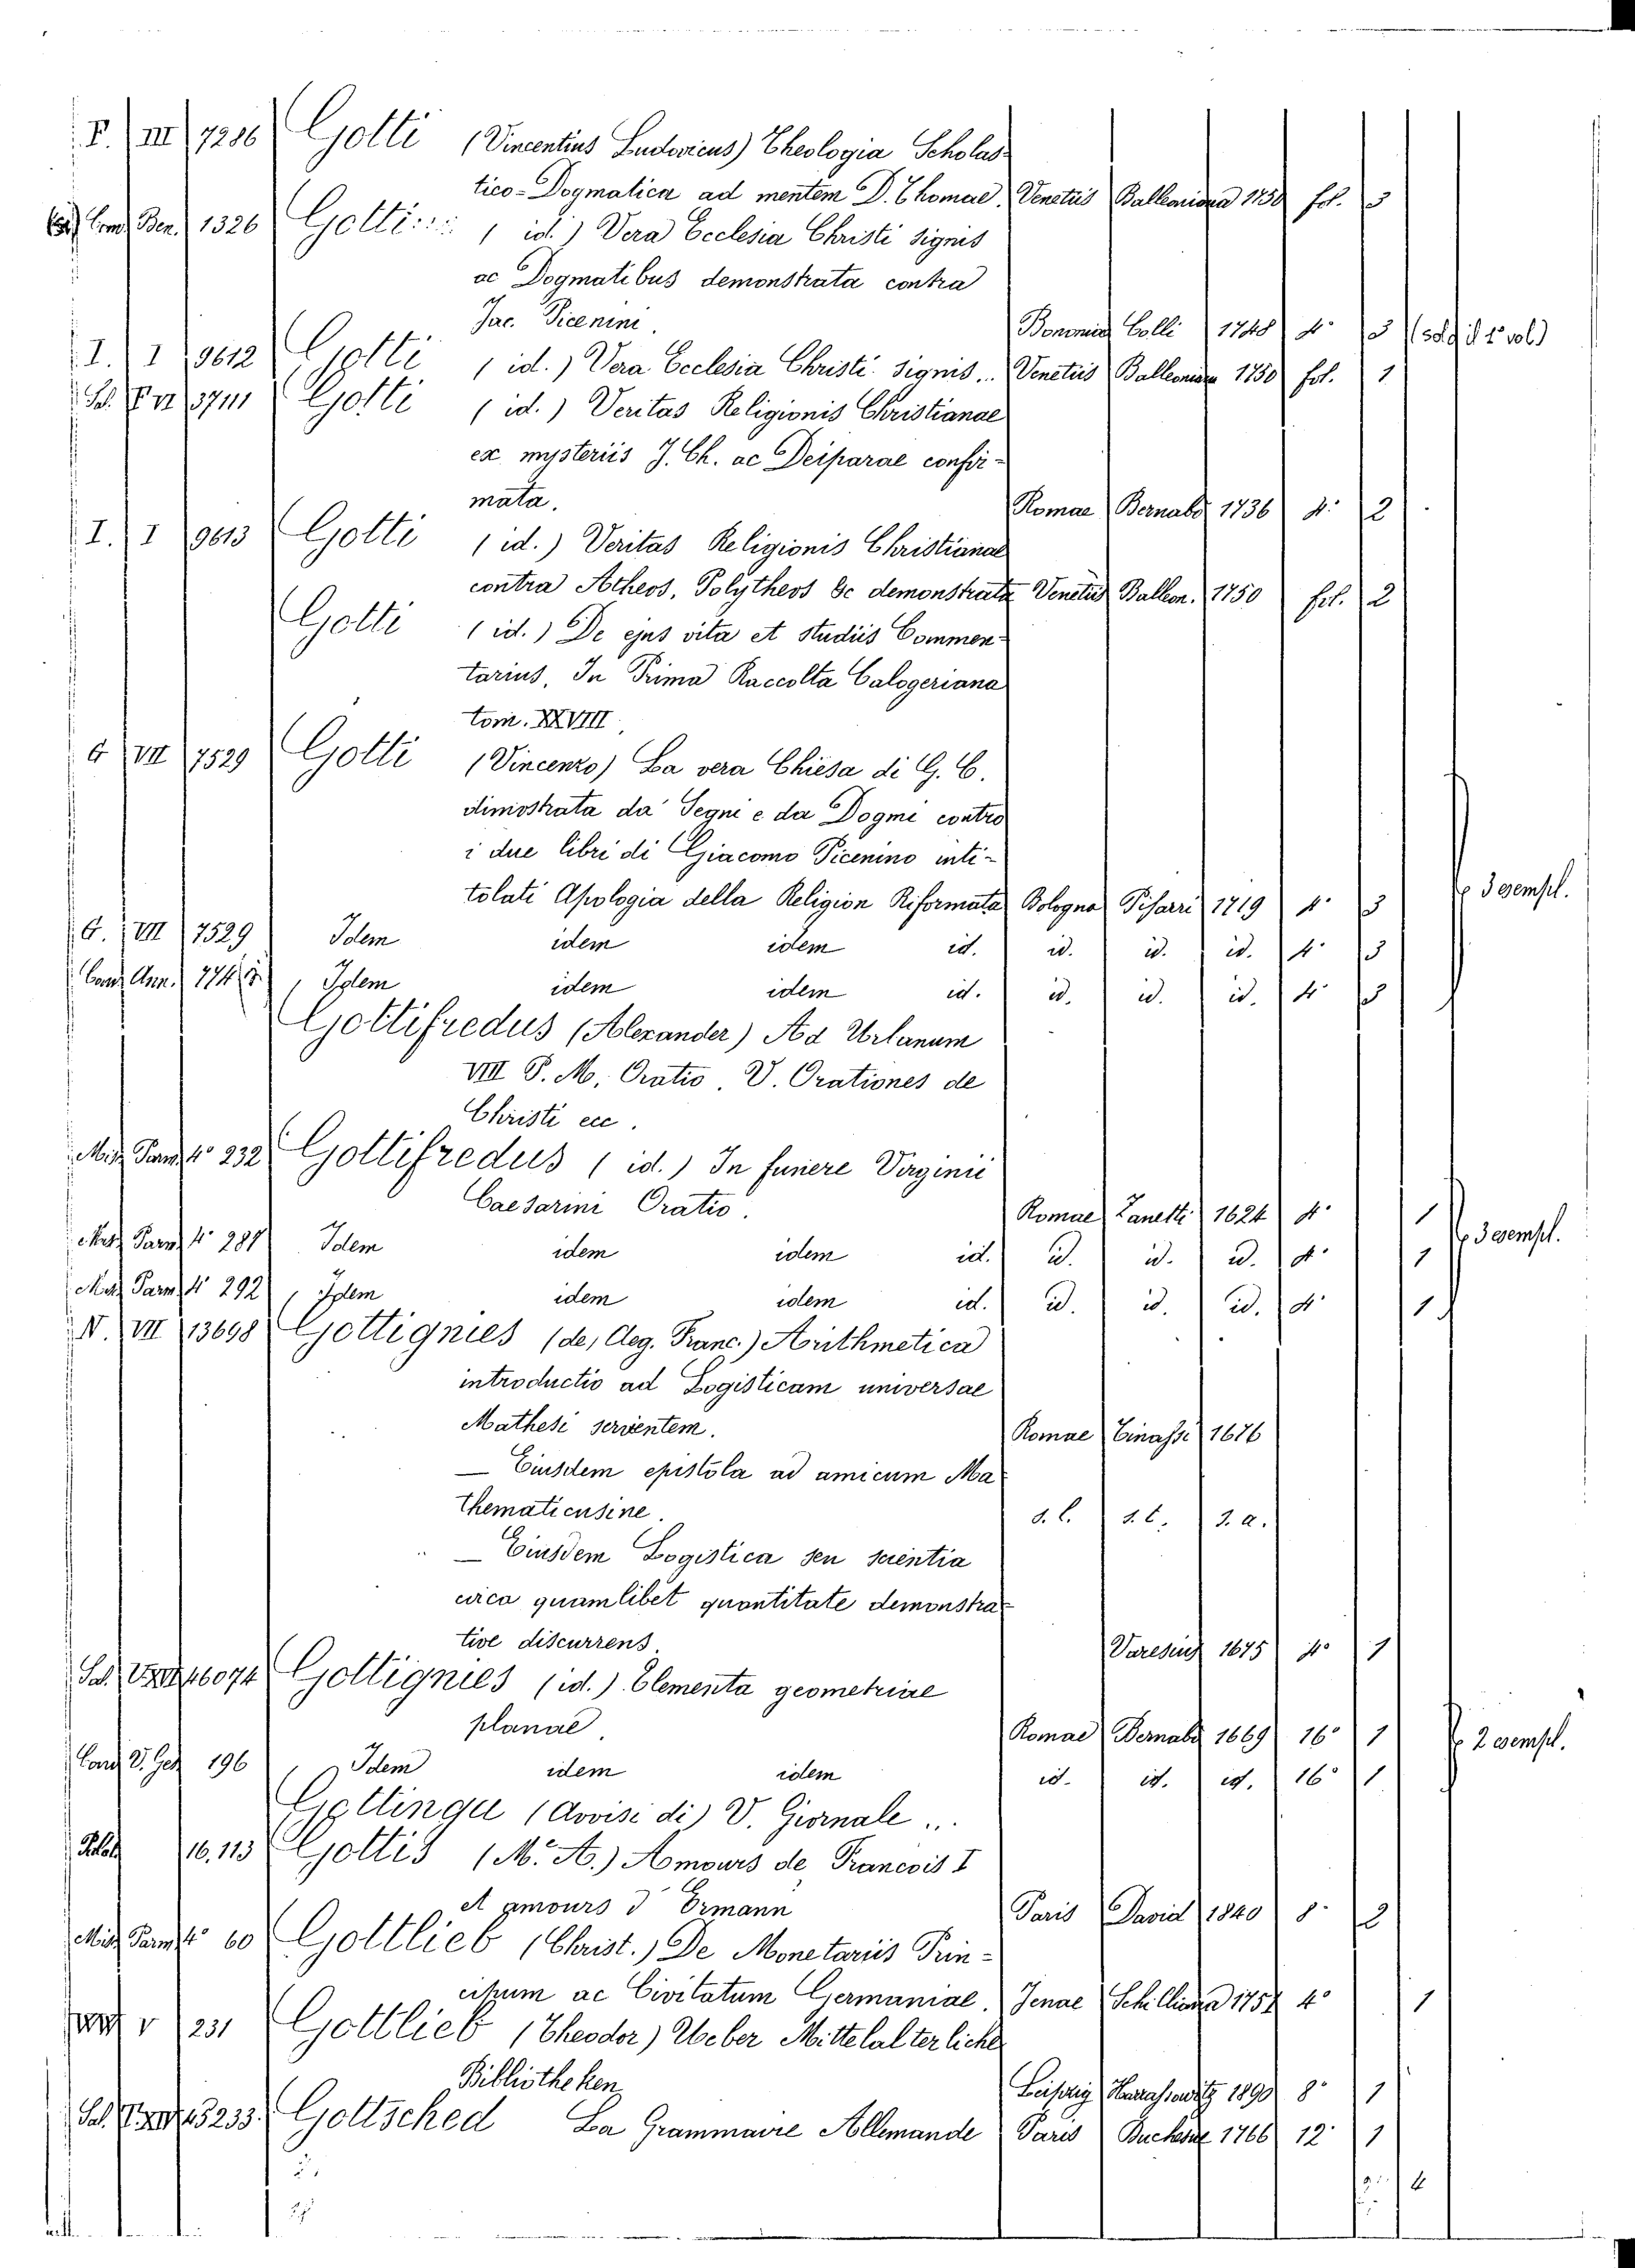 F. III 7286 Gotti (Vincentius Ludovicus) Theologia Scholas-
tico-Dogmatica ad mentem D. Thomae. Venetiis Balleoniana 1750 fol. 3
Ben. 1326 Gotti (id.) Vera Ecclesia Christi signis
ac Dogmatibus demonstrata contra
Jac. Picenini. Bononiae Colli 1748 4° 3 (solo il 1° vol)
I. I 9612 Gotti (id.) Vera Ecclesia Christi signis.. Venetiis Balleoniana 1750 fol. 1
Gotti (id.) Veritas Religionis Christianae
ex mysteriis J. Ch. ac Deiparae confir-
mata. Romae Bernabò 1736 4° 2
I. I 9613 Gotti (id.) Veritas Religionis Christianae
contra Atheos, Polytheos &c demonstrata Venetiis Balleon. 1750 fol. 2
Gotti (id.) De ejus vita et studiis Commen-
tarius, In Prima Raccolta Calogeriana
tom. XXVIII.
G VII 7529 Gotti (Vincenzo) La vera Chiesa di G. C.
dimostrata da' Segni e da Dogmi contro
i due libri di Giacomo Picenino inti-
tolati Apologia della Religion Riformata Bologna Pisarri 1719 4° 3 3 esempl.
G. VII 7529 Idem idem idem id. id. id. id. 4° 3
Ann. Idem idem idem id. id. id. id. 4° 3
Gottifredus (Alexander) Ad Urbanum
VIII P. M. Oratio. V. Orationes de
Christi ecc.
Misc. Parm. 4° 232 Gottifredus (id.) In funere Virginii
Caesarini Oratio. Romae Zanetti 1624 4° 1 3 esempl.
Misc. Parm. 4° 287 Idem idem idem id. id. id. id. 4° 1
Misc. Parm. 4° 292 Idem idem idem id. id. id. id. 4° 1
N. VII 13698 Gottignies (de, Aeg. Franc.) Arithmetica
introductio ad Logisticam universae
Mathesi servientem. Romae 1676
— Eiusdem epistola ad amicum Ma-
thematicusine. s. l. s. t. s. a.
— Eiusdem Logistica seu scientia
circa quamlibet quantitate demonstra-
tive discurrens. Varesius 1675 4° 1
Sal. 16074 Gottignies (id.) Elementa geometriae
planae. Romae Bernabò 1669 16° 1 2 esempl.
196 Idem idem idem id. id. id. 16° 1
Gottinga (Avvisi di) V. Giornale ...
16.113 Gottis (M.e A.) Amours de Francois I
et amours d' Ermann Paris David 1840 8° 2
Misc. Parm. 4° 60 Gottlieb (Christ.) De Monetariis Prin-
cipum ac Civitatum Germaniae. Jenae 4° 1
V 231 Gottlieb (Theodor) Ueber Mittelalterliche
Bibliotheken Leipzig Harrassowitz 1890 8° 1
Sal. Gottsched La Grammaire Allemande Paris 1766 12° 1